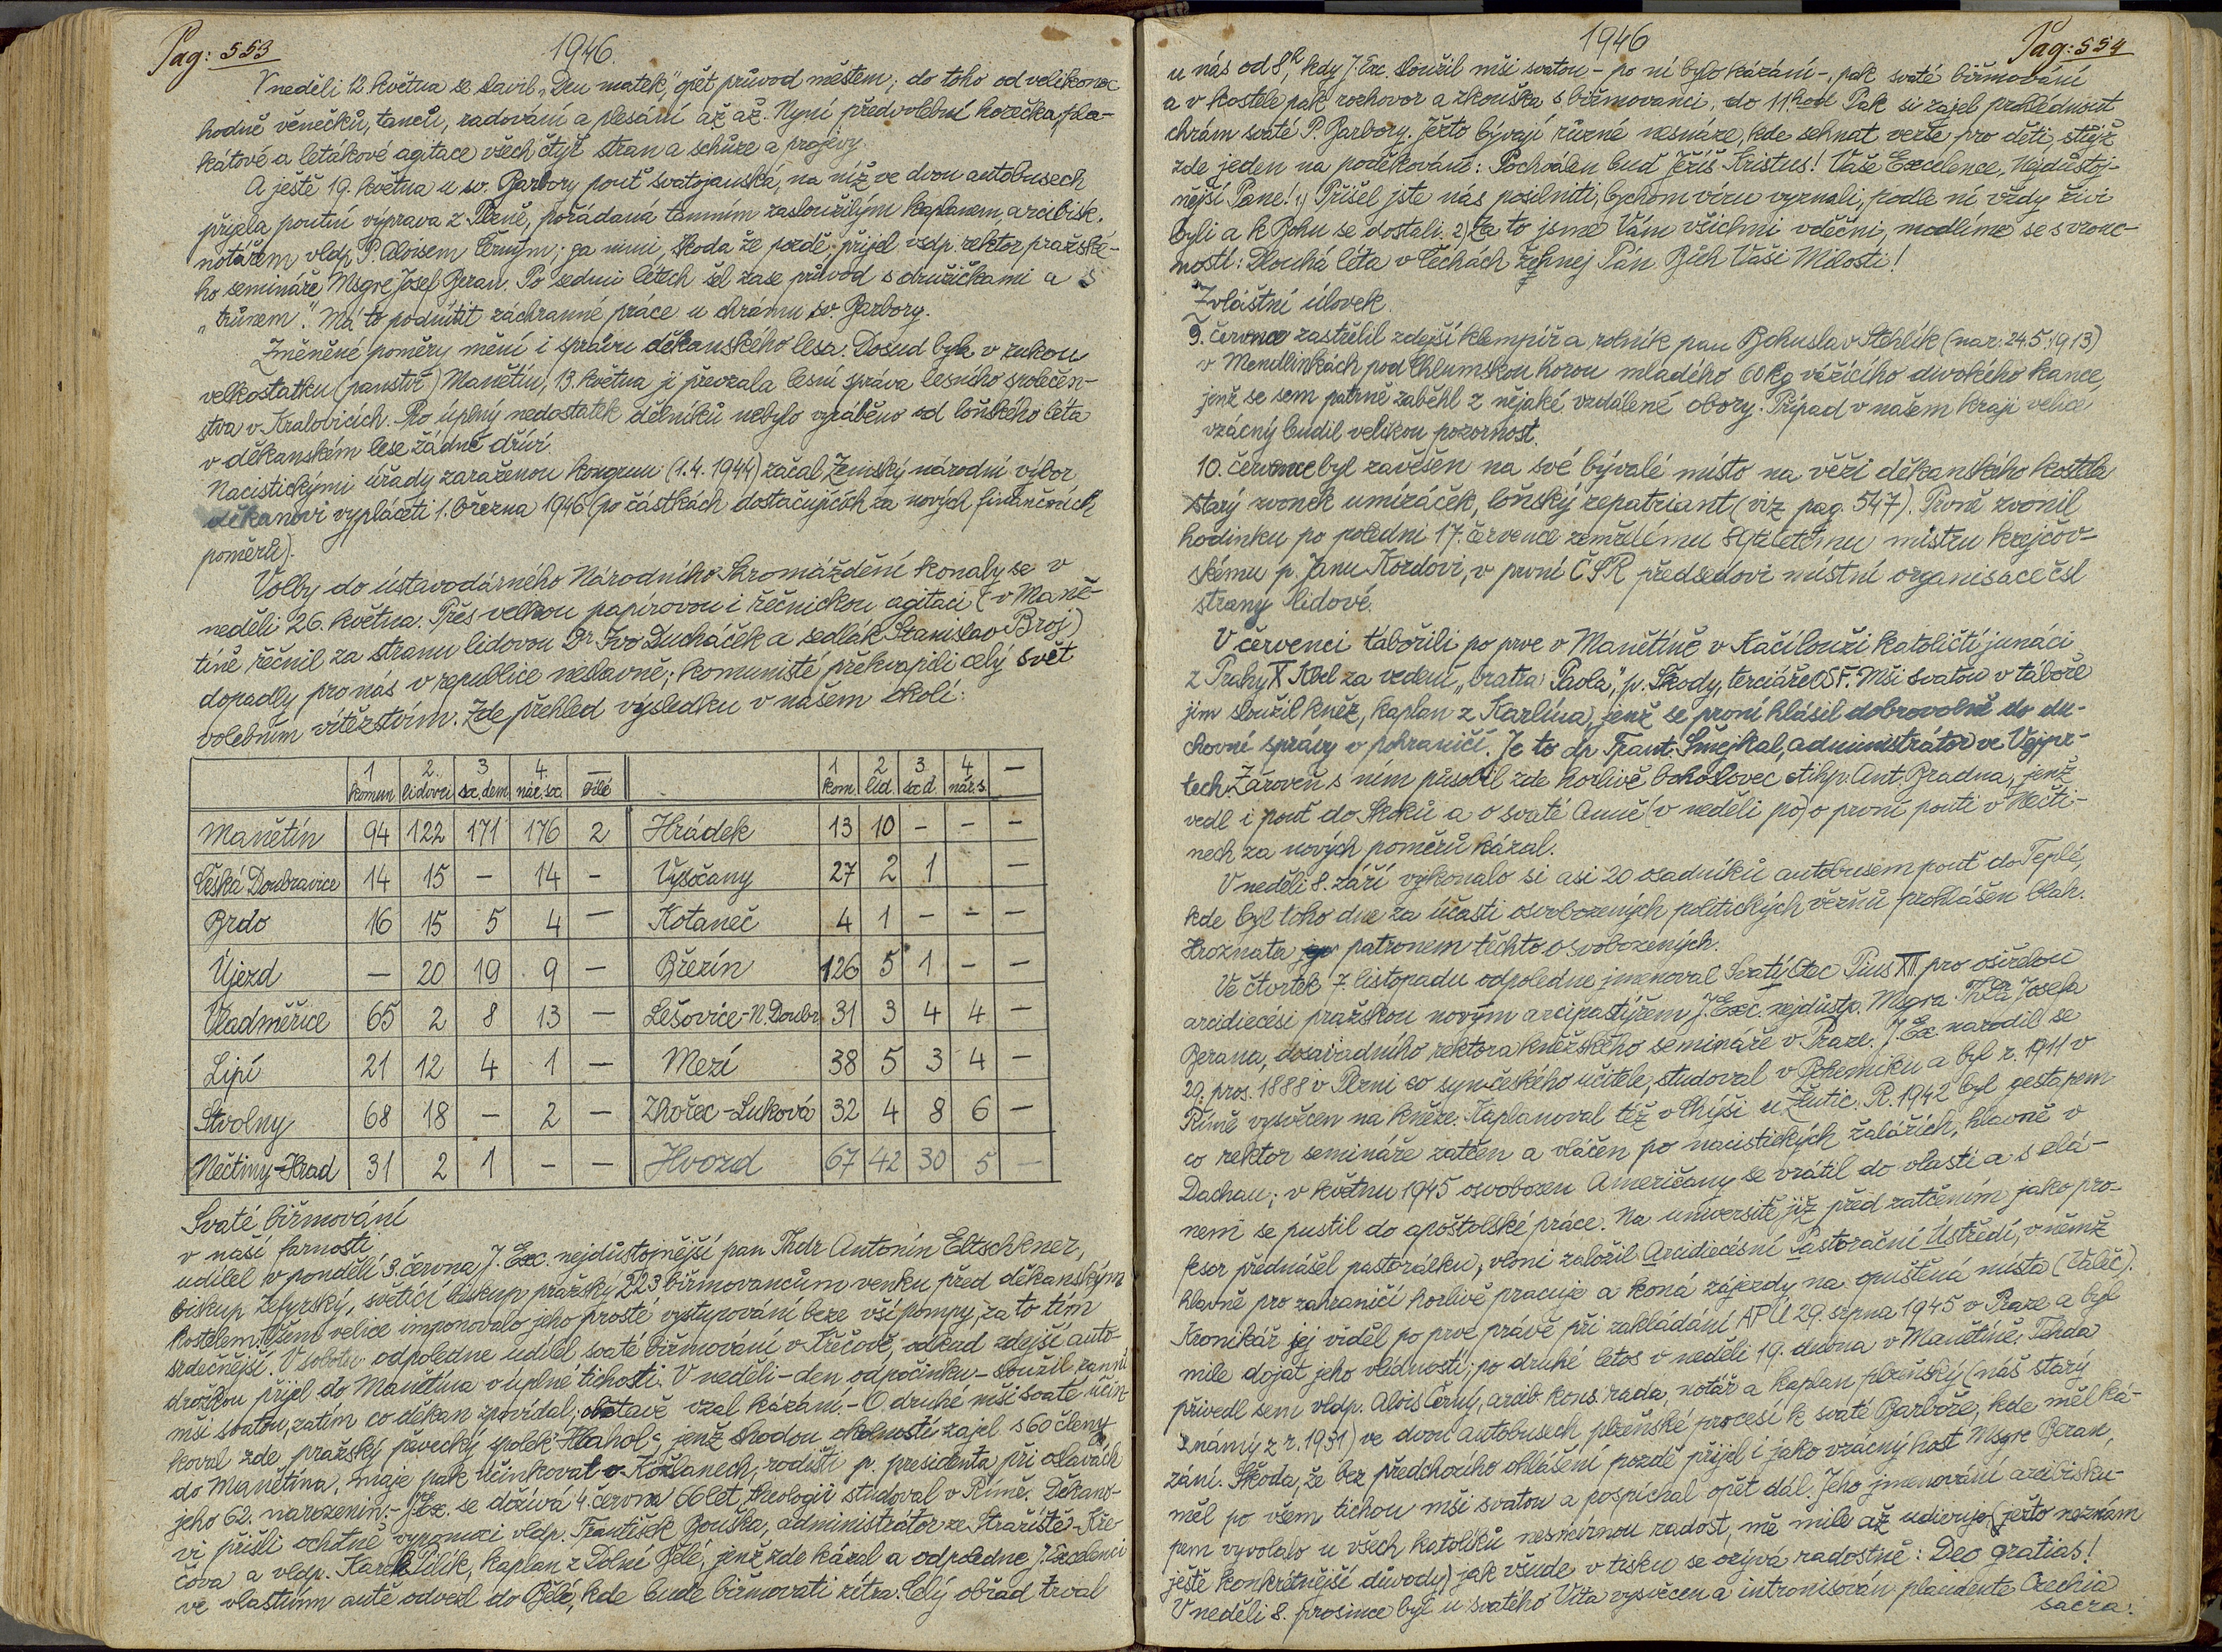 Pag: 553
1946.
V neděli 12. května se slavil „Den matek", opět průvod městem; do toho od velikonoc
hodně věnečků, tanců, radování a plesání až až. Nyní předvolební horečka, pla-
kátové a letákové agitace všech čtyř stran a schůze a projevy.
A ještě 19. května u sv. Barbory pouť svatojanská, na níž ve dvou autobusech
přijela poutní výprava z Plzně, pořádaná tamním zasloužilým kaplanem, arcibisk.
notářem vldp. P. Aloisem Černým; za nimi, škoda že pozdě, přijel vsdp. rektor pražské-
ho semináře Msgre Josef Beran. Po sedmi letech šel zase průvod s družičkami a s
„trůnem". Má to podnítit záchranné práce u chrámu sv. Barbory.
Změněné poměry mění i správu děkanského lesa. Dosud byla v rukou
velkostatku (panství) Manětín, 13. května ji převzala lesní správa lesního společen-
stva v Kralovicích. Pro úplný nedostatek dělníků nebylo vyráběno od loňského léta
v děkanském lese žádné dříví.
Nacistickými úřady zaraženou kongruu (1.4.1944) začal Zemský národní výbor
děkanovi vypláceti 1. března 1946 (po částkách dostačujících za nových finančních
poměrů).
Volby do ústavodárného Národního Shromáždění konaly se v
neděli 26. května. Přes velkou papírovou i řečnickou agitaci (v Maně-
tíně řečnil za stranu lidovou Dr. Ivo Ducháček a sedlák Stanislav Broj)
dopadly pro nás v republice neslavně; komunisté překvapili celý svět
volebním vítězstvím. Zde přehled výsledku v našem okolí:
1 2. 3 4. — 1 2 3. 4 —
komun lidovci sc. dem nár. soc bílé kom lid scd nár. s.
Manětín 94 122 171 176 2 Hrádek 13 10 - - -
Česká Doubravice 14 15 - 14 - Vysočany 27 2 1 —
Brdo 16 15 5 4 — Kotaneč 4 1 - - -
Újezd — 20 19 9 — Březín 126 5 1 - -
Vladměřice 65 2 8 13 — Lešovice-N. Doubr. 31 3 4 4 —
Lipí 21 12 4 1 — Mezí 38 5 3 4 —
Stvolny 68 18 - 2 — Zhořec-Luková 32 4 8 6 —
Nečtiny-Hrad 31 2 1 - — Hvozd 67 42 30 5 —
Svaté biřmování
v naší farnosti
udílel v pondělí 3. června J. Exc. nejdůstojnější pan Thdr Antonín Eltschkner,
biskup Zefyrský, světící biskup pražský 223 biřmovancům venku před děkanským
kostelem. Všem velice imponovalo jeho prosté vystupování beze vší pompy, za to tím
srdečnější. V sobotu odpoledne udílel svaté biřmování v Krečově, odkud zdejší auto-
drožkou přijel do Manětína v úplné tichosti. V neděli - den odpočinku - sloužil ranní
mši svatou, zatím co děkan zpovídal; obstaje vzal kázání. - O druhé mši svaté účin-
koval zde pražský pěvecký spolek „Hlahol", jenž shodou okolností zajel s 60 členy
do Manětína, maje pak účinkovat v Kožlanech, rodišti p. presidenta při oslavách
jeho 62. narozenin. - J. Ex. se dožívá 4. června 66 let, theologii studoval v Římě. Děkano-
vi přišli ochotně vypomoci vldp. František Bouška, administrátor ze Strážiště-Kře-
čova a vldp. Karel Bílík, kaplan z Dolní Bělé, jenž zde kázal a odpoledne J. Excelenci
ve vlastním autě odvezl do Bělé, kde bude biřmovati zítra. Celý obřad trval
1946
Pag: 554
u nás od 8h, kdy J. Exc. sloužil mši svatou - po ní bylo kázání -, pak svaté biřmování
a v kostele pak rozhovor a zkouška s biřmovanci, do 11. hod. Pak si zajel prohlédnout
chrám svaté P. Barbory. Ježto bývají různé nesnáze, kde sehnat verše pro děti, stůjž
zde jeden na poděkování: Pochválen buď Ježíš Kristus! Vaše Excelence, Nejdůstoj-
nější Pane! 1) Přišel jste nás posilniti, bychom víru vyznali, podle ní vždy živi
byli a k Bohu se dostali. 2) Za to jsme Vám všichni vděčni, modlíme se s vrouc-
ností: Dlouhá léta v Čechách žehnej Pán Bůh Vaší Milosti!
Zvláštní úlovek
9. července zastřelil zdejší klempíř a rolník pan Bohuslav Stehlík (nar: 24.5.1913)
v Mendlinkách pod Chlumskou horou mladého 60 kg vážícího divokého kance,
jenž se sem patrně zaběhl z nějaké vzdálené obory. Případ v našem kraji velice
vzácný budil velikou pozornost.
10. července byl zavěšen na své bývalé místo na věži děkanského kostela
starý zvonek umíráček, loňský repatriant (viz pag. 547). Prvně zvonil
hodinku po poledni 17. července zemřelému 89tiletému mistru krejčov-
skému p. Janu Kordovi, v první ČSR předsedovi místní organisace čsl
strany lidové.
V červenci tábořili po prve v Manětíně v Kačí louži katoličtí junáci
z Prahy X Kbel za vedení „bratra Paola", p. Škody, terciáře OSF. Mši svatou v táboře
jim sloužil kněz, kaplan z Karlína, jenž se první hlásil dobrovolně do du-
chovní správy v pohraničí. Je to dp. Frant. Smejkal, administrátor ve Vejpr-
tech. Zároveň s ním působil zde horlivě bohoslovec ctihp. Ant. Bradna, jenž
vedl i pouť do Skoků a o svaté Anně (v neděli po) o první pouti v Nečti-
nech za nových poměrů kázal.
V neděli 8. září vykonalo si asi 20 osadníků autobusem pouť do Teplé,
kde byl toho dne za účasti osvobozených politických vězňů prohlášen blah.
Hroznata patronem těchto osvobozených.
Ve čtvrtek 7. listopadu odpoledne jmenoval Svatý Otec Pius XII. pro osiřelou
arcidiecési pražskou novým arcipastýřem J. Exc. nejdůstp. Msgra Thdra Josefa
Berana, dosavadního rektora kněžského semináře v Praze. J. Ex. narodil se
29. pros. 1888 v Plzni co syn českého učitele, studoval v Bohemiku a byl r. 1911 v
Římě vysvěcen na kněze. Kaplanoval též v Chýši u Žlutic. R. 1942 byl gestapem
co rektor semináře zatčen a vláčen po nacistických žalářích, hlavně v
Dachau; v květnu 1945 osvobozen Američany se vrátil do vlasti a s elá-
nem se pustil do apoštolské práce. Na universitě již před zatčením jako pro-
fesor přednášel pastorálku, vloni založil Arcidiecésní Pastorační Ústředí, v němž
hlavně pro zahraničí horlivě pracuje a koná zájezdy na opuštěná místa (Valeč).
Kronikář jej viděl po prve právě při zakládání APÚ 29. srpna 1945 v Praze a byl
mile dojat jeho vlídností; po druhé letos v neděli 19. dubna v Manětíně. Tehda
přivedl sem vldp. Alois Černý, arcib. kons. rada, notář a kaplan plzeňský (náš starý
známý z r. 1931) ve dvou autobusech plzeňské procesí k svaté Barboře, kde měl ká-
zání. Škoda, že bez předchozího ohlášení pozdě přijel i jako vzácný host Msgre Beran,
měl po všem tichou mši svatou a pospíchal opět dál. Jeho jmenování arcibisku-
pem vyvolalo u všech katolíků nesmírnou radost, mě mile až udivuje, (ježto neznám
ještě konkrétnější důvody) jak všude v tisku se ozývá radostně: Deo gratias!
V neděli 8. prosince byl u svatého Víta vysvěcen a intronisován plaudente Czechia
sacra.